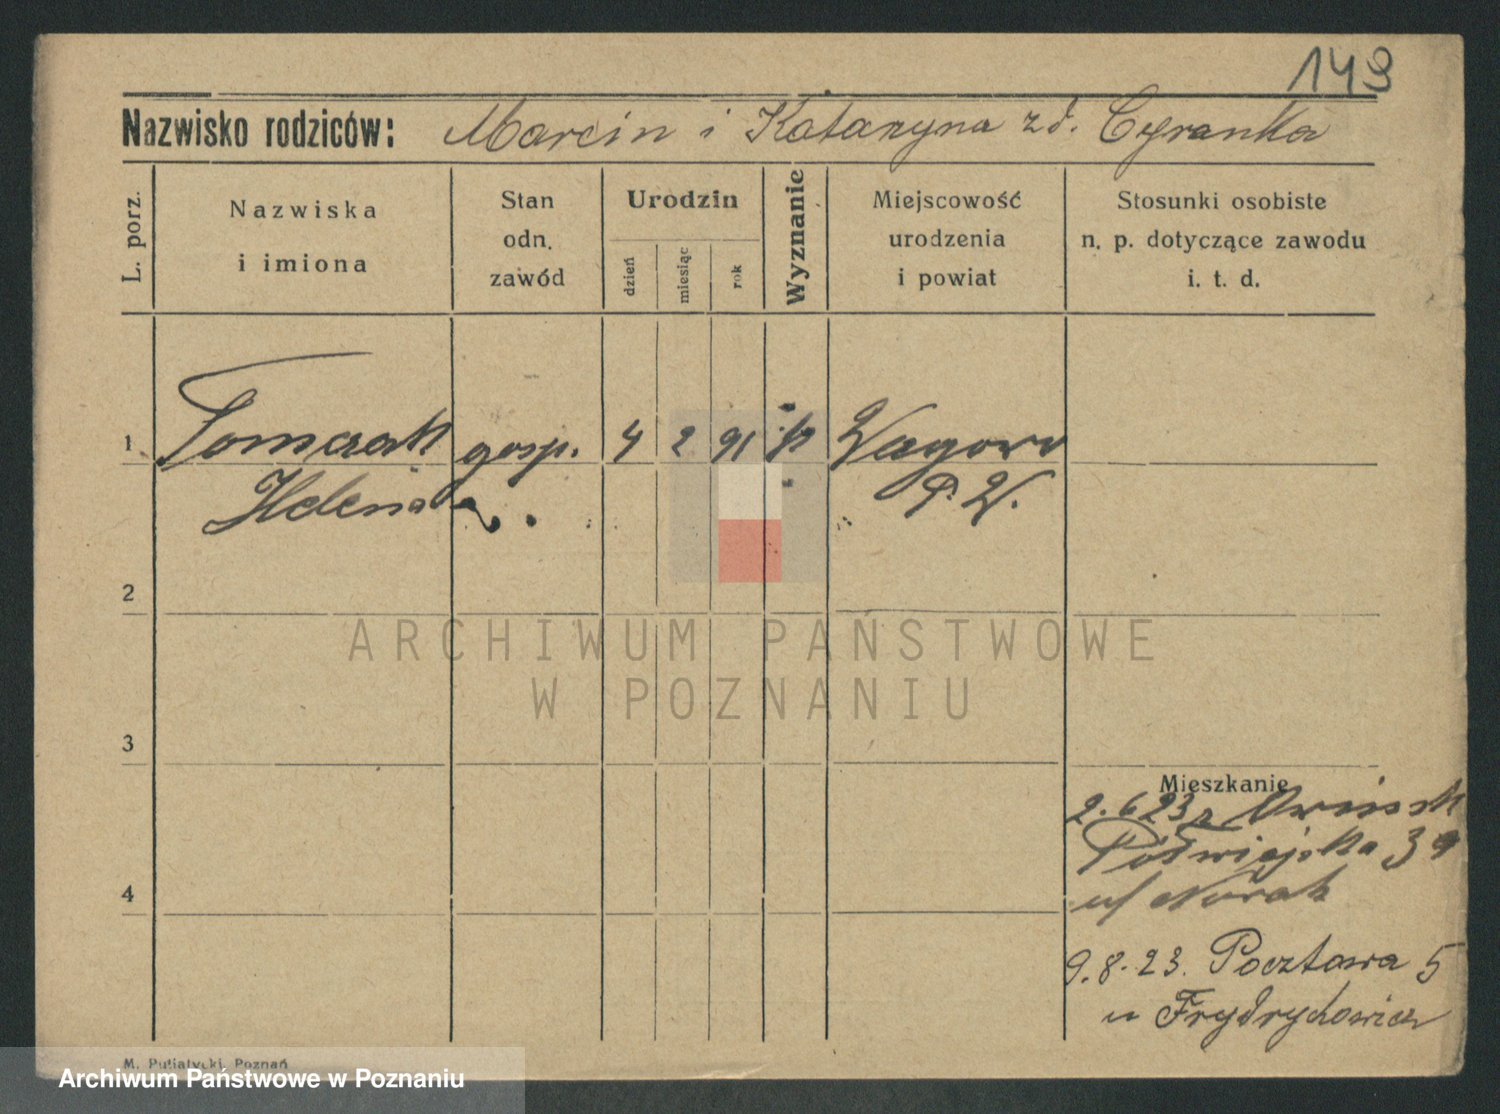 149
Nazwisko rodziców: Marcin i Katarzyna zd. Cyranka
L. porz.
Nazwiska
i imiona
Stan
odn.
zawód
Urodzin
dzień
miesiąc
rok
Wyznanie
Miejscowość
urodzenia
i powiat
Stosunki osobiste
n. p. dotyczące zawodu
i. t. d.
1 Tomczak gosp. 4 2 91 Wagowo
Helena P. W.
2
ARCHIWUM PAŃSTWOWE
W POZNANIU
3
Mieszkanie
2.6 23 z Owinsk
Półwiejska 39
u/ Nowak
4
9.8.23. Pocztowa 5
u Frydrychowicz
M. Putiatycki, Poznań
Archiwum Państwowe w Poznaniu